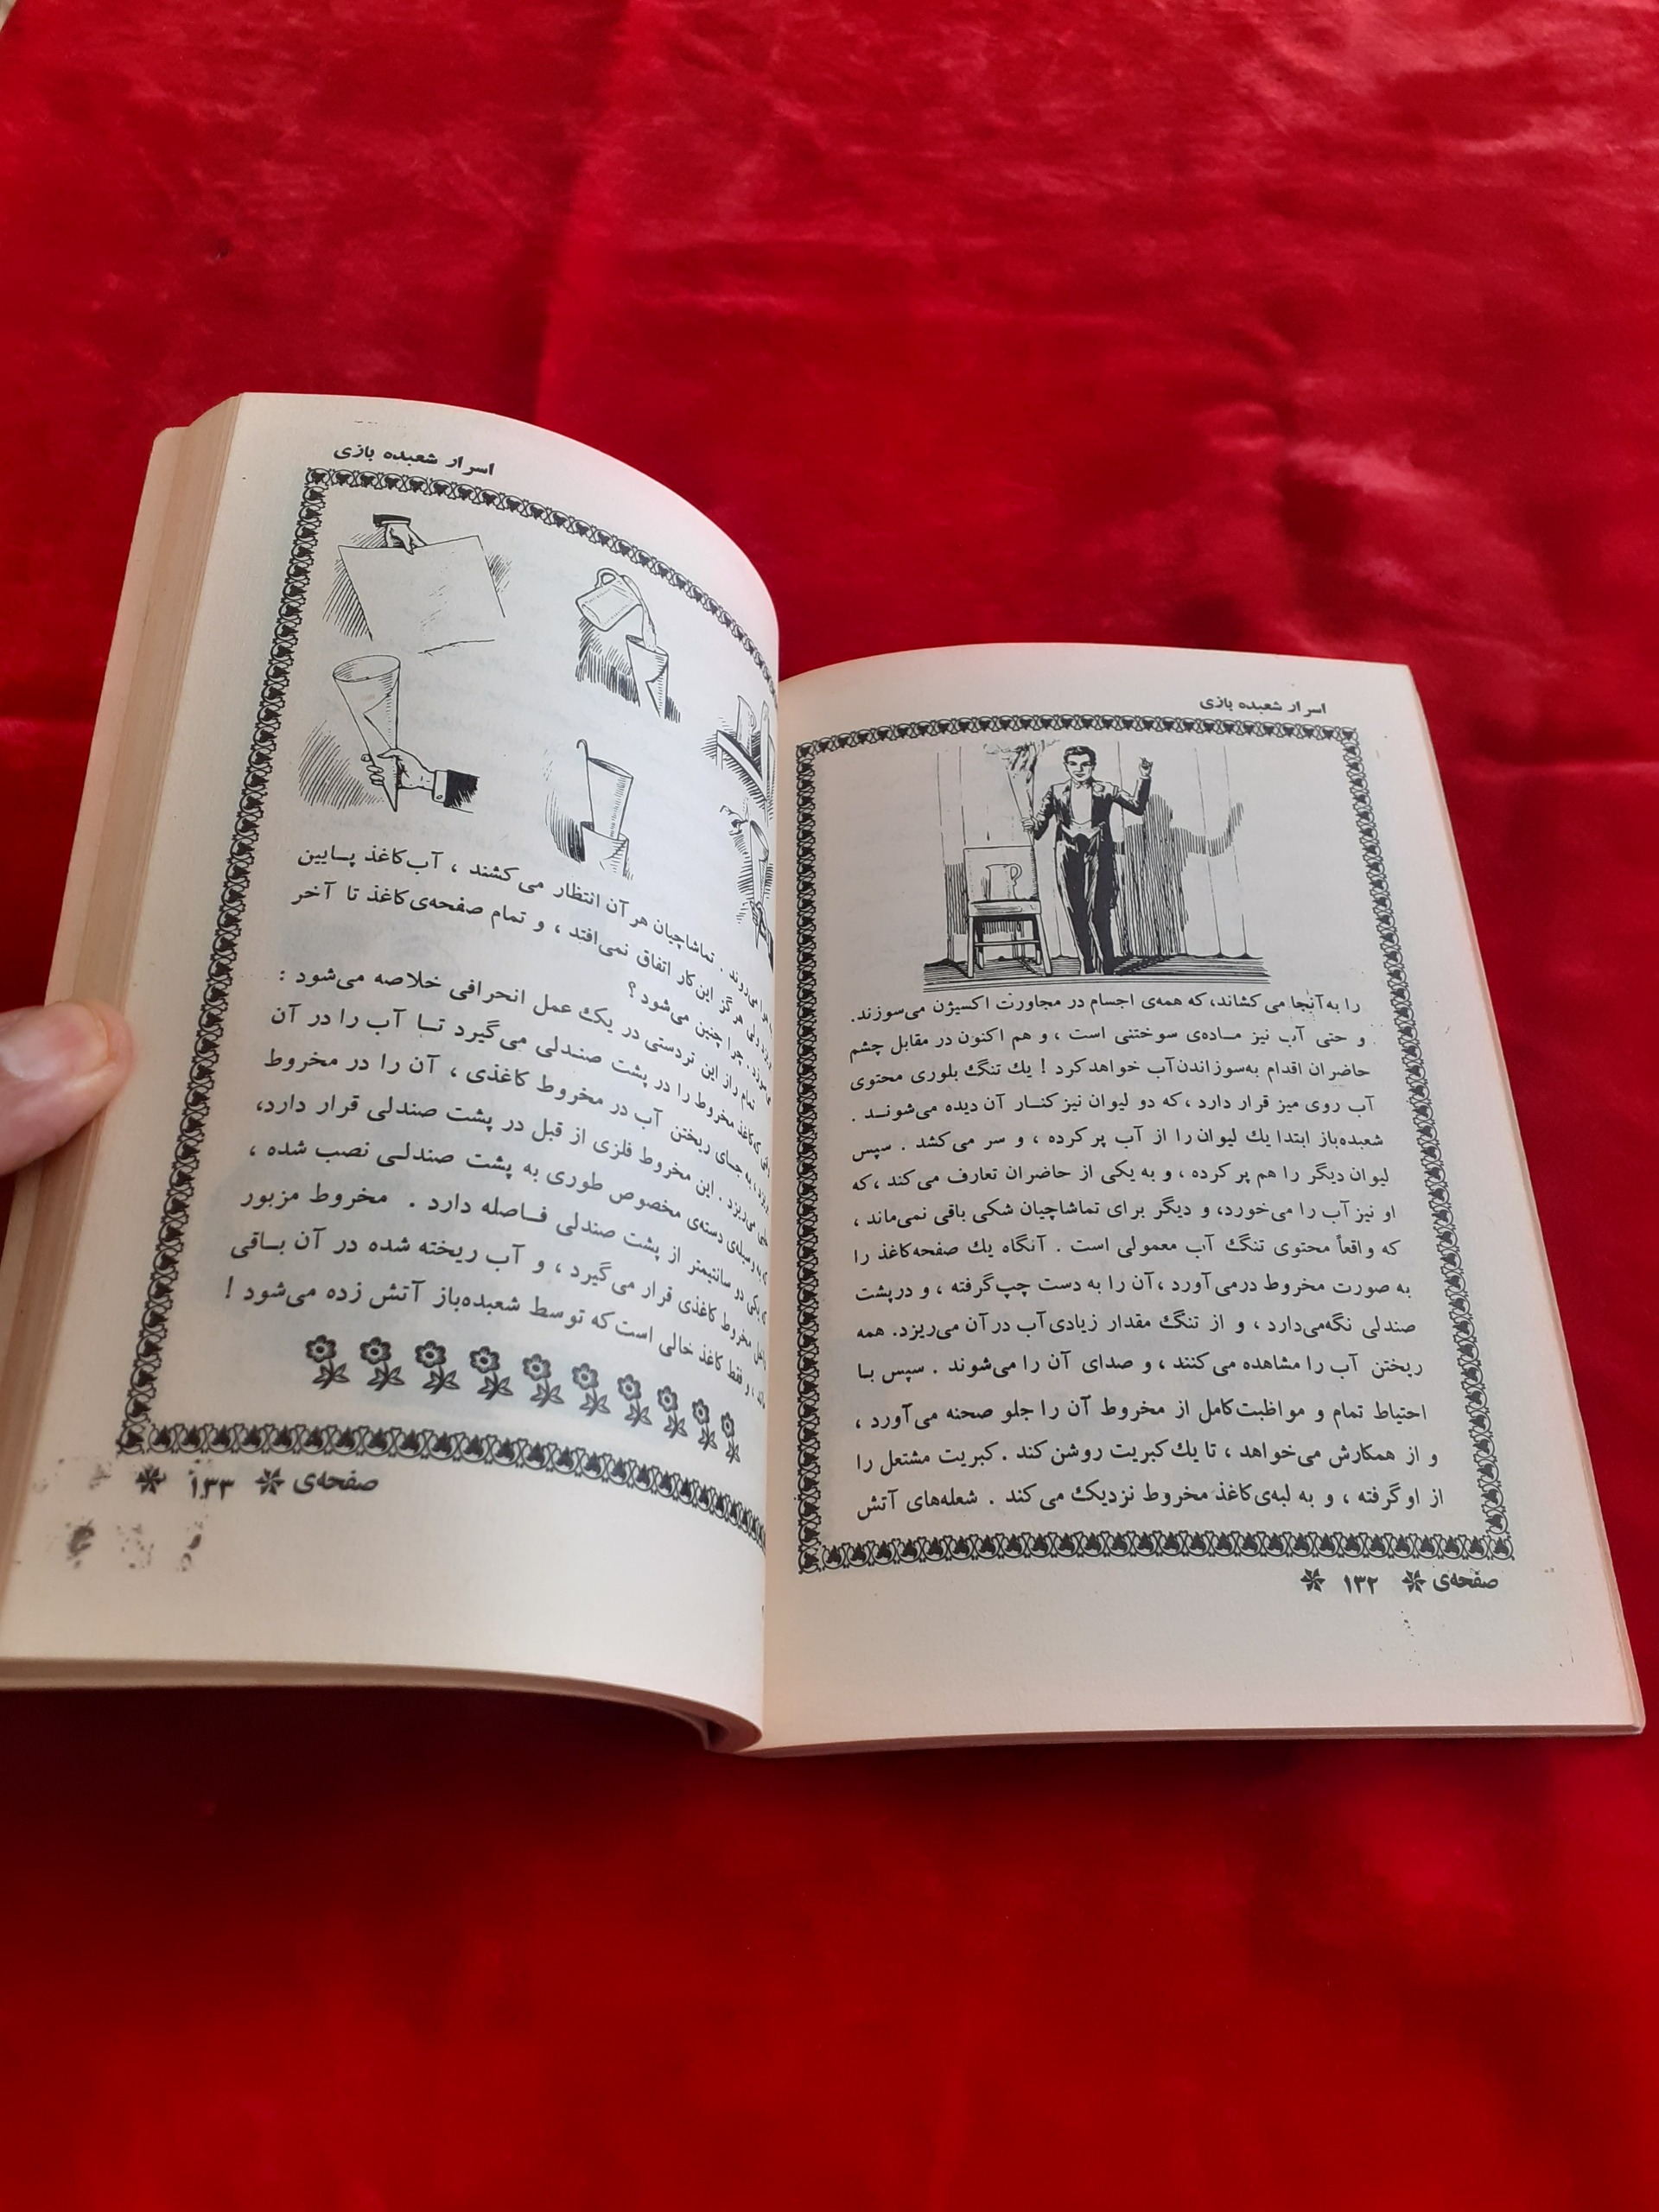 اسرار شعبده بازی
را به‌آنجا می‌کشاند، که همه‌ی اجسام در مجاورت اکسیژن می‌سوزند.
و حتی آب نیز مــاده‌ی سوختنی است ، و هم اکنون در مقابل چشم
حاضران اقدام به‌سوزاندن‌آب خواهدکرد ! یك تنگ بلوری محتوی
آب روی میز قرار دارد ، که دو لیوان نیز کنــار آن دیده می‌شونــد .
شعبده‌باز ابتدا یك لیوان را از آب پر کرده ، و سر می‌کشد . سپس
لیوان دیگر را هم پر کرده ، و به یکی از حاضران تعارف می‌کند ، که
او نیز آب را می‌خورد، و دیگر برای تماشاچیان شکی باقی نمی‌ماند ،
که واقعاً محتوی تنگ آب معمولی است . آنگاه یك صفحه‌کاغذ را
به صورت مخروط درمی‌آورد ، آن را به دست چپ‌گرفته ، و درپشت
صندلی نگه‌می‌دارد ، و از تنگ مقدار زیادی‌آب درآن می‌ریزد. همه
ریختن آب را مشاهده می‌کنند ، و صدای آن را می‌شوند . سپس بــا
احتیاط تمام و مواظبت‌کامل از مخروط آن را جلو صحنه می‌آورد ،
و از همکارش می‌خواهد ، تا یك‌کبریت روشن‌کند . کبریت مشتعل را
از اوگرفته ، و به لبه‌ی‌کاغذ مخروط نزدیك می‌کند . شعله‌های آتش
صفحه‌ی ۱۳۲
اسرار شعبده بازی
می‌روند . تماشاچیان هر آن انتظار می‌کشند ، آب‌کاغذ پــایین
ولی هرگز این‌کار اتفاق نمی‌افتد ، و تمام صفحه‌ی‌کاغذ تا آخر
چرا چنین می‌شود ؟
تمام راز این تردستی در یك عمل انحرافی خلاصه می‌شود :
که‌کاغذ مخروط را در پشت صندلی می‌گیرد تــا آب را در آن
به جــای ریختن آب در مخروط کاغذی ، آن را در مخروط
می‌ریزد . این مخروط فلزی از قبل در پشت صندلی قرار دارد،
به وسیله‌ی دسته‌ی مخصوص طوری به پشت صندلــی نصب شده ،
یکی دو سانتیمتر از پشت صندلی فــاصله دارد . مخروط مزبور
مخروط کاغذی قرار می‌گیرد ، و آب ریخته شده در آن بــاقی
و فقط کاغذ خالی است‌که توسط شعبده‌باز آتش زده می‌شود !
صفحه‌ی ۱۳۳